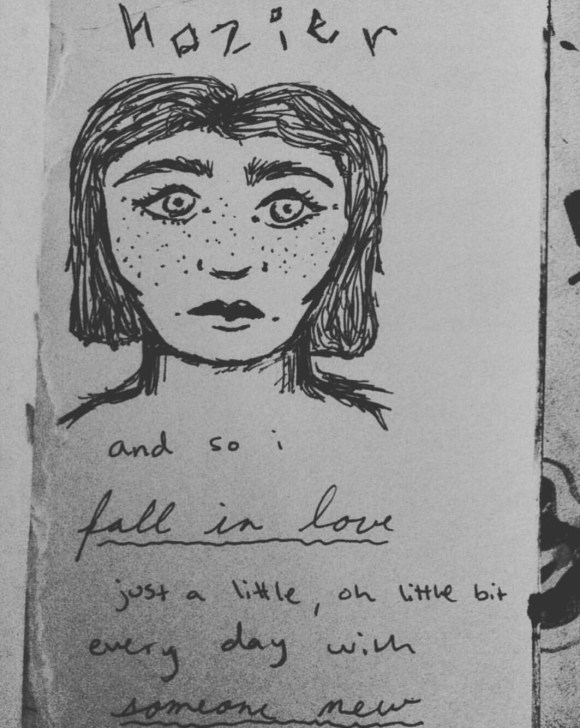 Hozier
and so i
fall in love
just a little, oh little bit
every day with
someone new